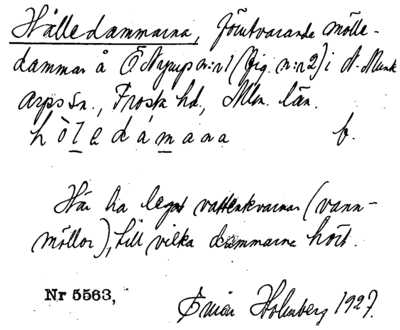 Hålledammarna, förutvarande mölle-
dammar å Ö Nyrup n:r 1 (fig. n:r 2) i N. Munk
arps sn., Frosta hd., Mlm. län.
hòledámana f.
Här ha legat vattenkvarnar (vann-
möllor), till vilka dammarne hört.
Nr 5563,
Einar Holmberg 1927.